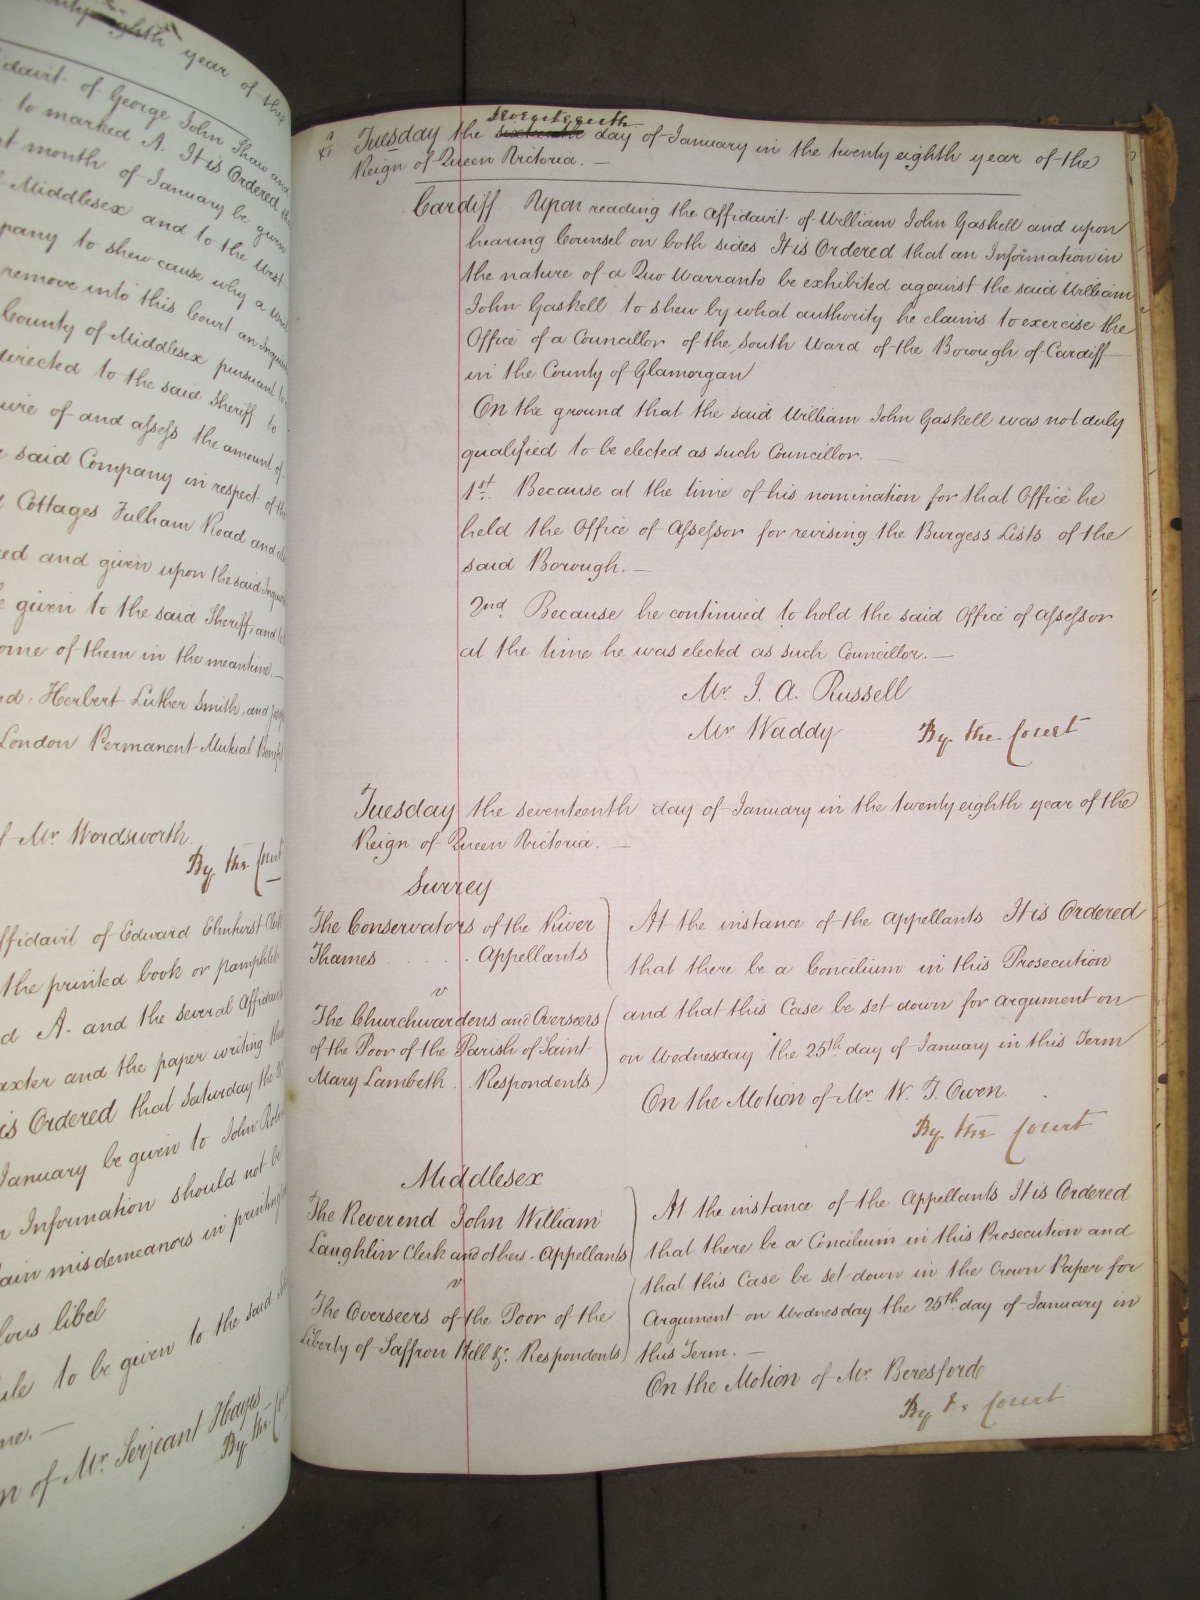 year of the
davit of George John Shaw and
to marked A. It is Ordered
month of January be given
Middlesex and to the West
pany to shew cause why a
remove into this Court an
County of Middlesex pursuant to
directed to the said Sheriff to
of and assess the amount of
said Company in respect of the
Cottages Fulham Road and
ed and given upon the said
given to the said Sheriff, and
ome of them in the meantime.—
Herbert Luther Smith, and
London Permanent Mutual
of Mr. Wordsworth.
By the Court
ffidavit of Edward Elmhirst
the printed book or pamphlet
A. and the several
axter and the paper writing
is Ordered that Saturday the
January be given to John
Information should not be
tain misdemeanors in printing
lous libel
to be given to the said
me.—
n of Mr. Serjeant Hayes
By the
Tuesday the seventeenth sixteenth day of January in the twenty eighth year of the
Reign of Queen Victoria.—
Cardiff Upon reading the affidavit of William John Gaskell and upon
hearing Counsel on both sides It is Ordered that an Information in
the nature of a Quo Warranto be exhibited against the said William
John Gaskell to shew by what authority he claims to exercise the
Office of a Councillor of the South Ward of the Borough of Cardiff
in the County of Glamorgan
On the ground that the said William John Gaskell was not duly
qualified to be elected as such Councillor.—
1st. Because at the time of his nomination for that Office he
held the Office of Assessor for revising the Burgess Lists of the
said Borough.—
2nd. Because he continued to hold the said Office of Assessor
at the time he was elected as such Councillor.—
Mr J. A. Russell
Mr Waddy By the Court
Tuesday the seventeenth day of January in the twenty eighth year of the
Reign of Queen Victoria.—
Surrey
The Conservators of the River
Thames . . . . . Appellants
v
The Churchwardens and Overseers
of the Poor of the Parish of Saint
Mary Lambeth . Respondents
At the instance of the Appellants It is Ordered
that there be a Concilium in this Prosecution
and that this Case be set down for argument on
on Wednesday the 25th. day of January in this Term
On the Motion of Mr. W. T. Owen.
By the Court
Middlesex
The Reverend John William
Laughlin Clerk and others - Appellants
v
The Overseers of the Poor of the
Liberty of Saffron Hill &c. Respondents
At the instance of the Appellants It is Ordered
that there be a Concilium in this Prosecution and
that this Case be set down in the Crown Paper for
Argument on Wednesday the 25th. day of January in
this Term.—
On the Motion of Mr. Beresford
By the Court